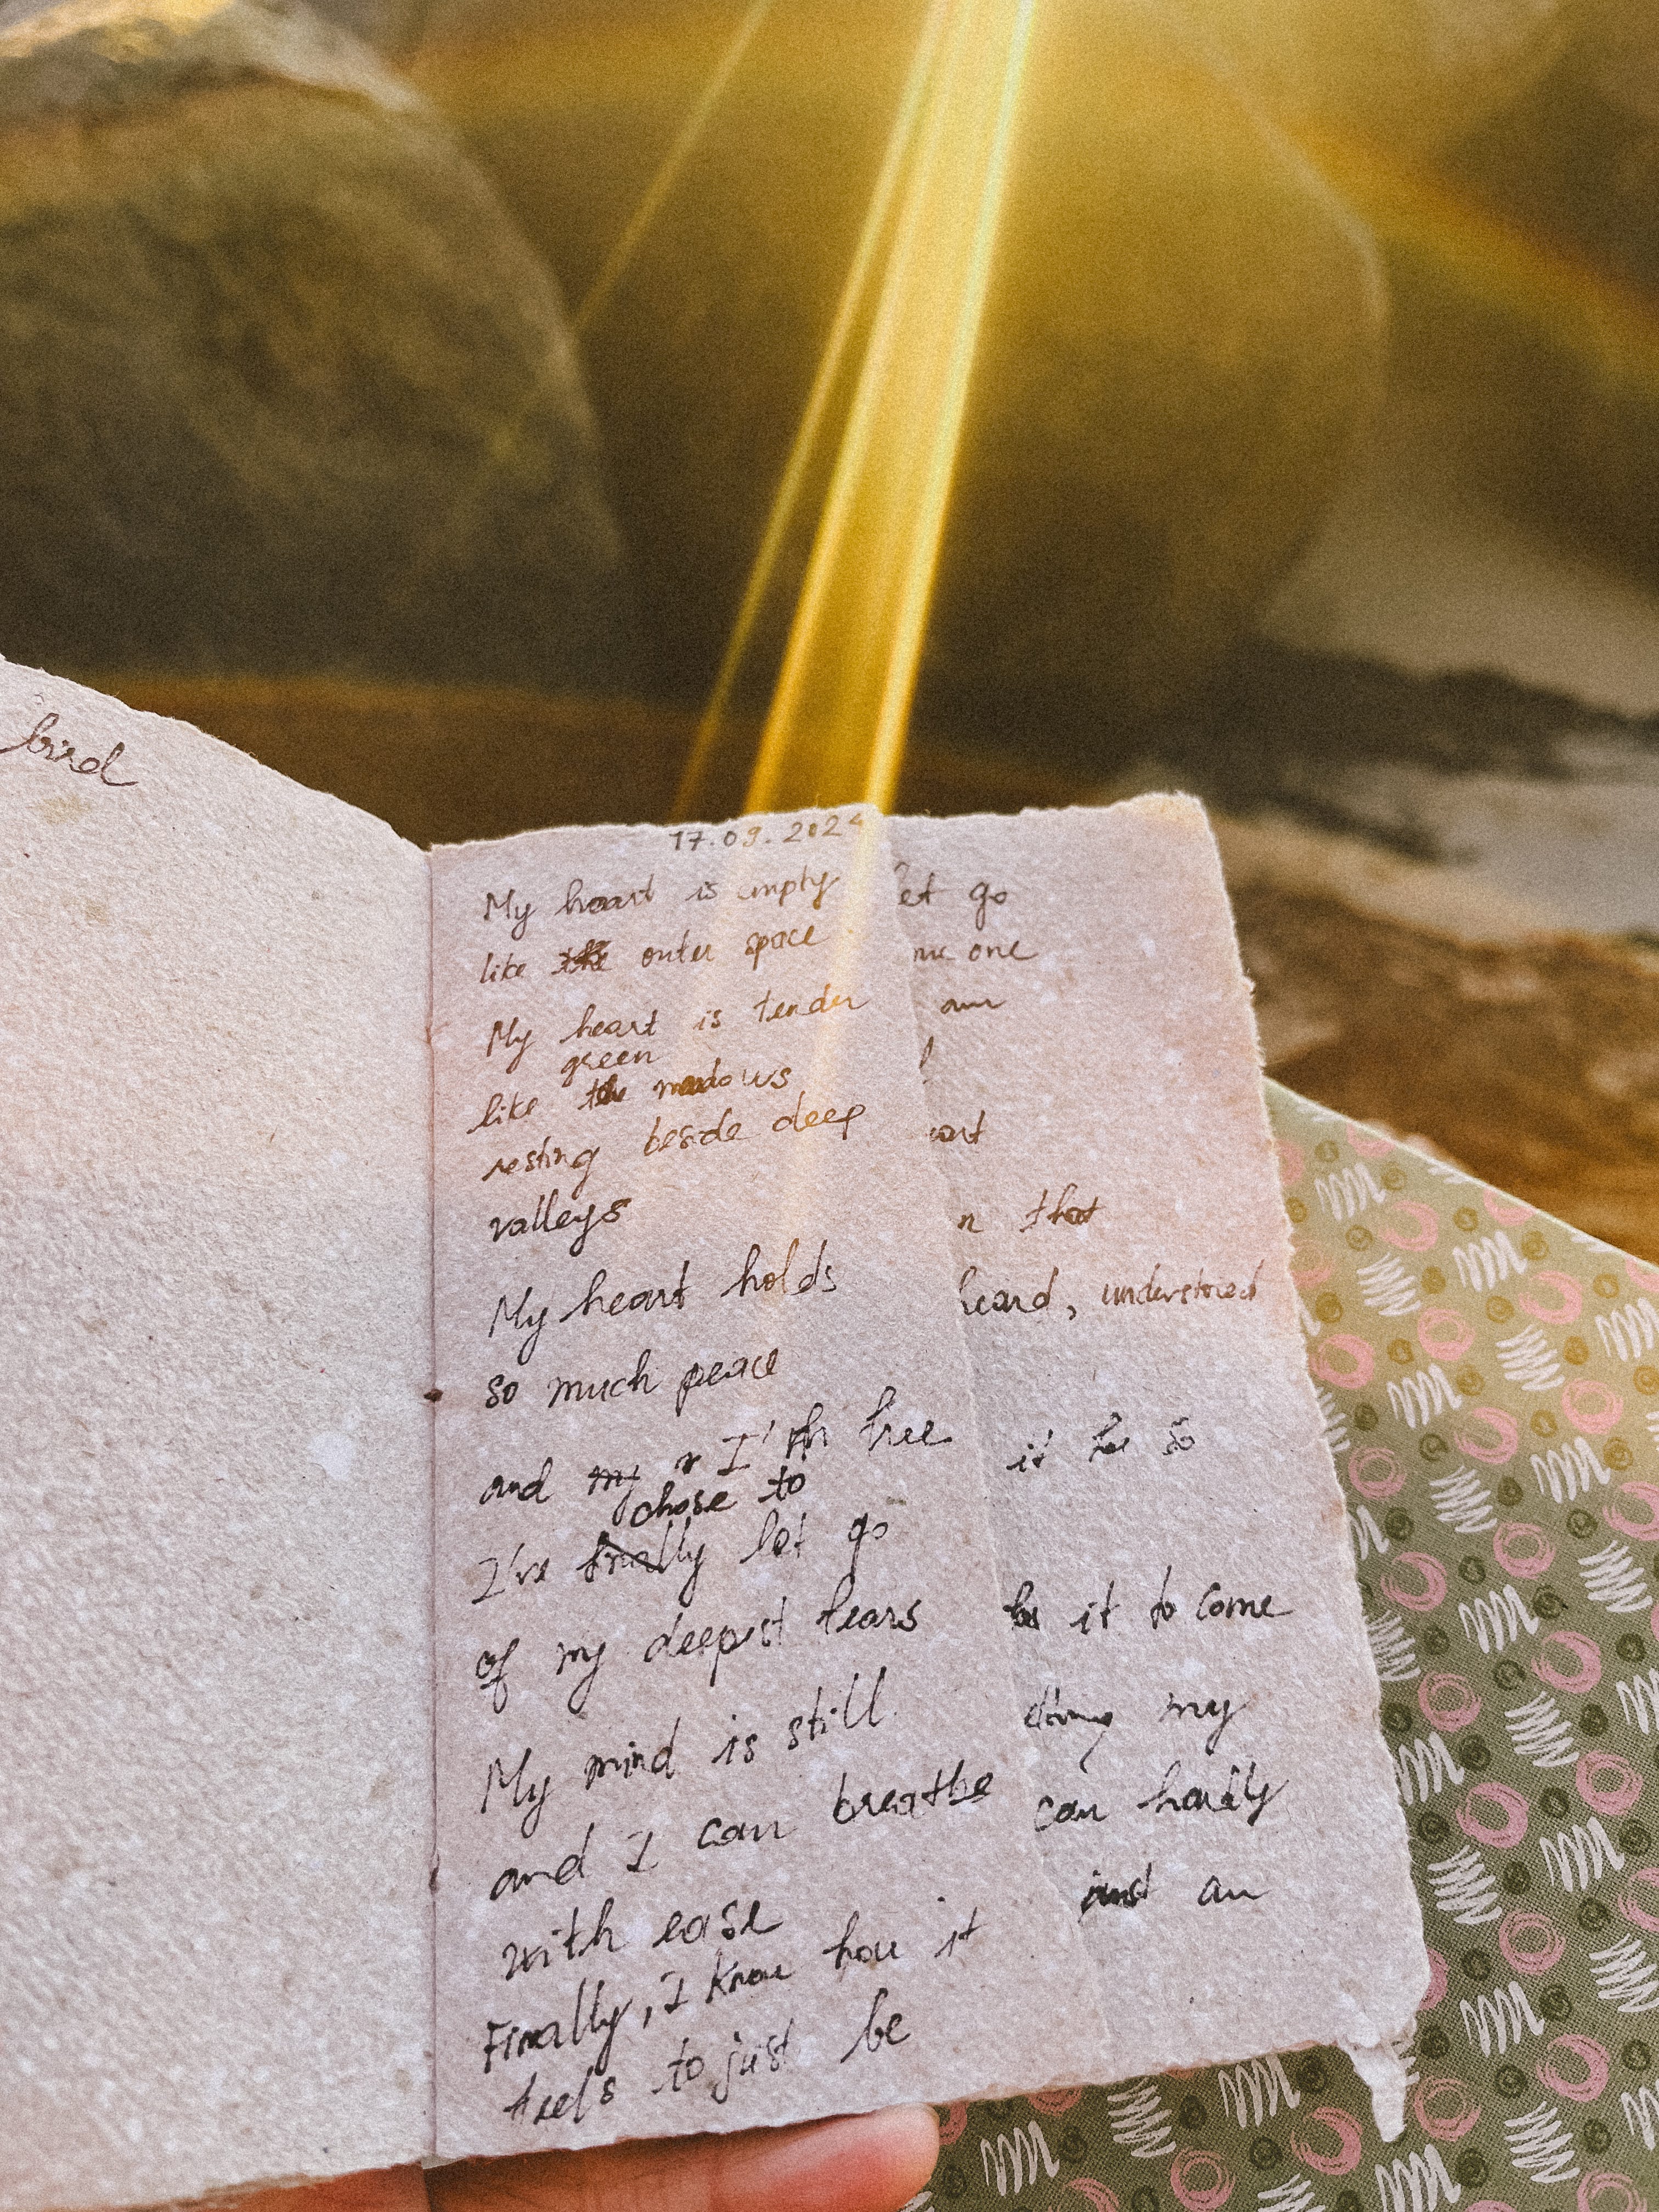 bird
17.09.2024
My heart is empty
like the outer space
My heart is tender
green
like the meadows
resting beside deep
valleys
My heart holds
so much peace
and my I'm free
chose to
I've finally let go
of my deepest fears
My mind is still
and I can breathe
with ease
Finally, I know how it
feels to just be
let go
one
am
n that
heard, understood
it be so
it to come
my
can hardly
just an